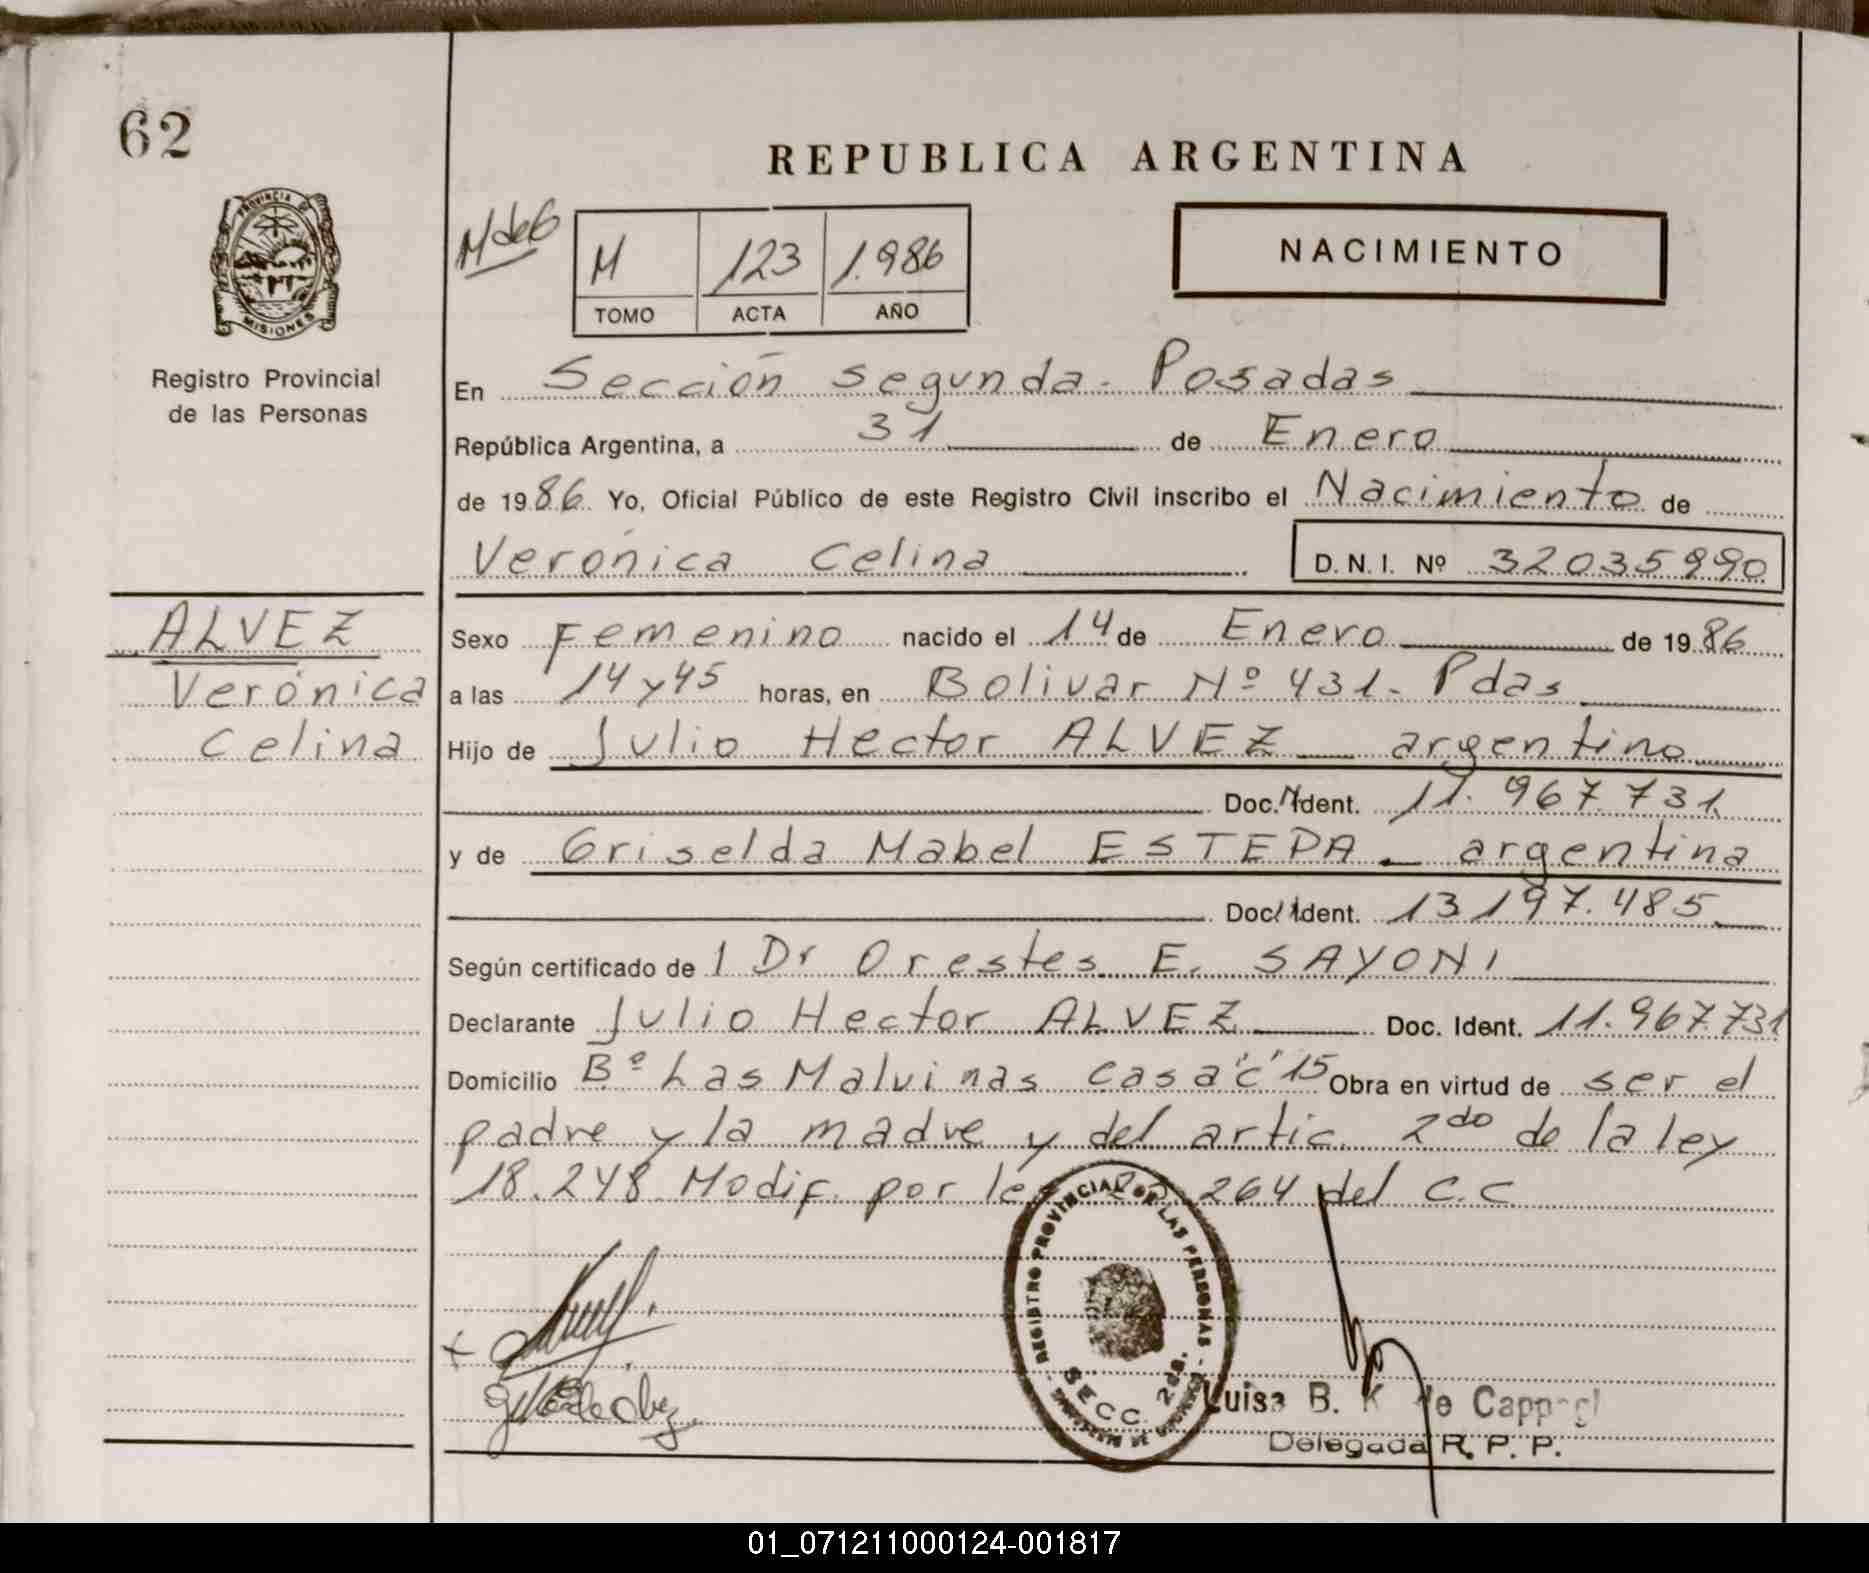 62
REPUBLICA ARGENTINA
PROVINCIA DE
MISIONES
Registro Provincial
de las Personas
M de G
M 123 1.986
TOMO ACTA AÑO
NACIMIENTO
En Sección segunda. Posadas
República Argentina, a 31 de Enero
de 1986. Yo, Oficial Público de este Registro Civil inscribo el Nacimiento de
Verónica Celina D.N.I. Nº 32035990
ALVEZ
Verónica
Celina
Sexo Femenino nacido el 14 de Enero de 1986
a las 14 y 45 horas, en Bolivar Nº 431. Pdas
Hijo de Julio Hector ALVEZ argentino
Doc. Ident. 11.967.731
y de Griselda Mabel ESTEPA argentina
Doc. Ident. 13.197.485
Según certificado de 1 Dr Orestes E. SAYONI
Declarante Julio Hector ALVEZ Doc. Ident. 11.967.731
Domicilio Bº Las Malvinas casa "c" 15 Obra en virtud de ser el
padre y la madre y del artic. 2do de la ley
18.248 Modif. por le 264 del C.C
REGISTRO PROVINCIAL DE LAS PERSONAS
SECC. 2da.
Luisa B. K de
Delegada R.P.P.
01_071211000124-001817